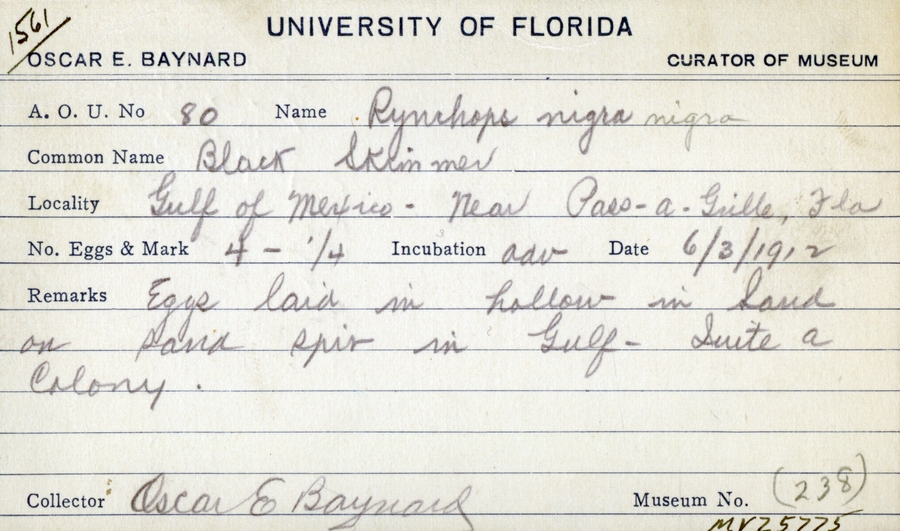 1561
UNIVERSITY OF FLORIDA
OSCAR E. BAYNARD CURATOR OF MUSEUM
A. O. U. No 80 Name Rynchops nigra nigra
Common Name Black Skimmer
Locality Gulf of Mexico - Near Pass-a-Grille, Fla
No. Eggs & Mark 4 - 1/4 Incubation adv Date 6/3/1912
Remarks Eggs laid in hollow in Sand
on sand spit in Gulf - Quite a
Colony.
Collector Oscar E Baynard Museum No. (238)
MVZ5775